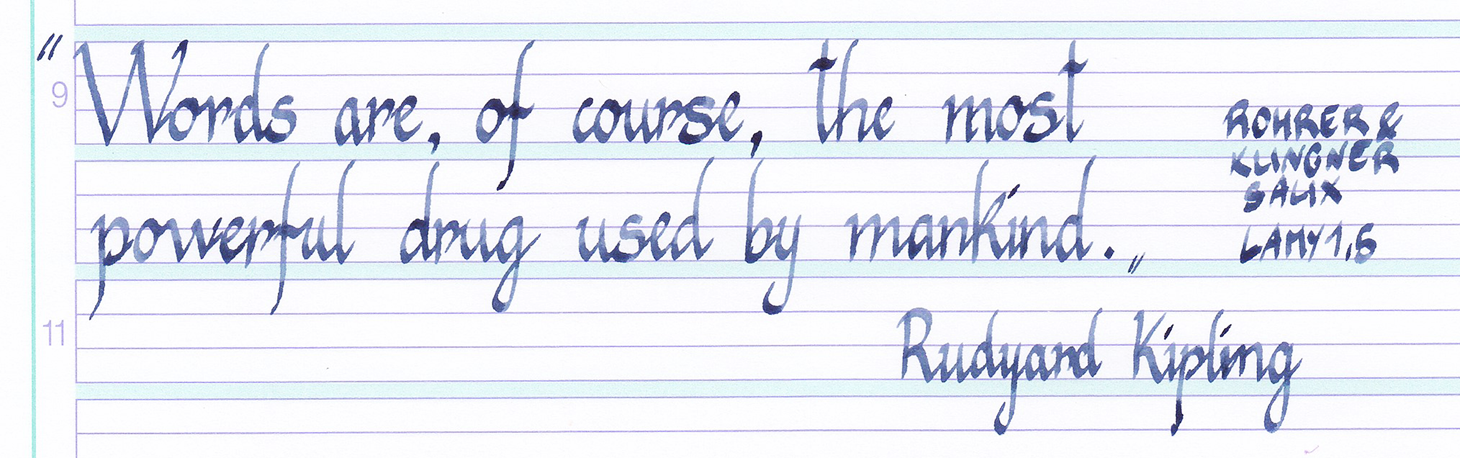 9
"Words are, of course, the most
powerful drug used by mankind.„
ROHRER &
KLINGNER
SALIX
LAMY 1,5
11
Rudyard Kipling